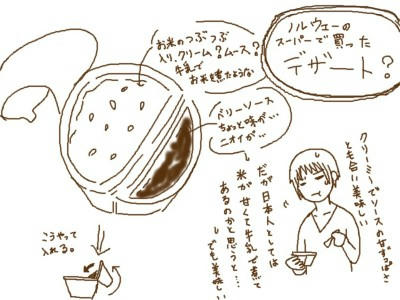 ノルウェーの
スーパーで買った
デザート?
お米のつぶつぶ
入り、クリーム?ムース?
牛乳で
お米煮たような
ベリーソース
ちょっと味が…
ニオイが…
クリーミーでソースの甘ずっぱさ
とも合い美味しい
だが日本人としては
米が甘くて牛乳で煮て
あるのかと思うと…
しでも美味しい
こうやって
入れる。